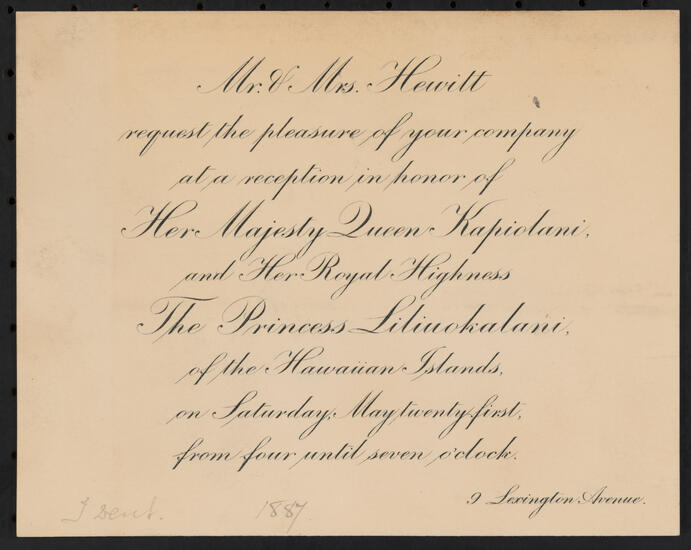 Mr. & Mrs. Hewitt
request the pleasure of your company
at a reception in honor of
Her Majesty Queen Kapiolani,
and Her Royal Highness
The Princess Liliuokalani,
of the Hawaiian Islands,
on Saturday, May twenty-first,
from four until seven o'clock.
9 Lexington Avenue.
1887.